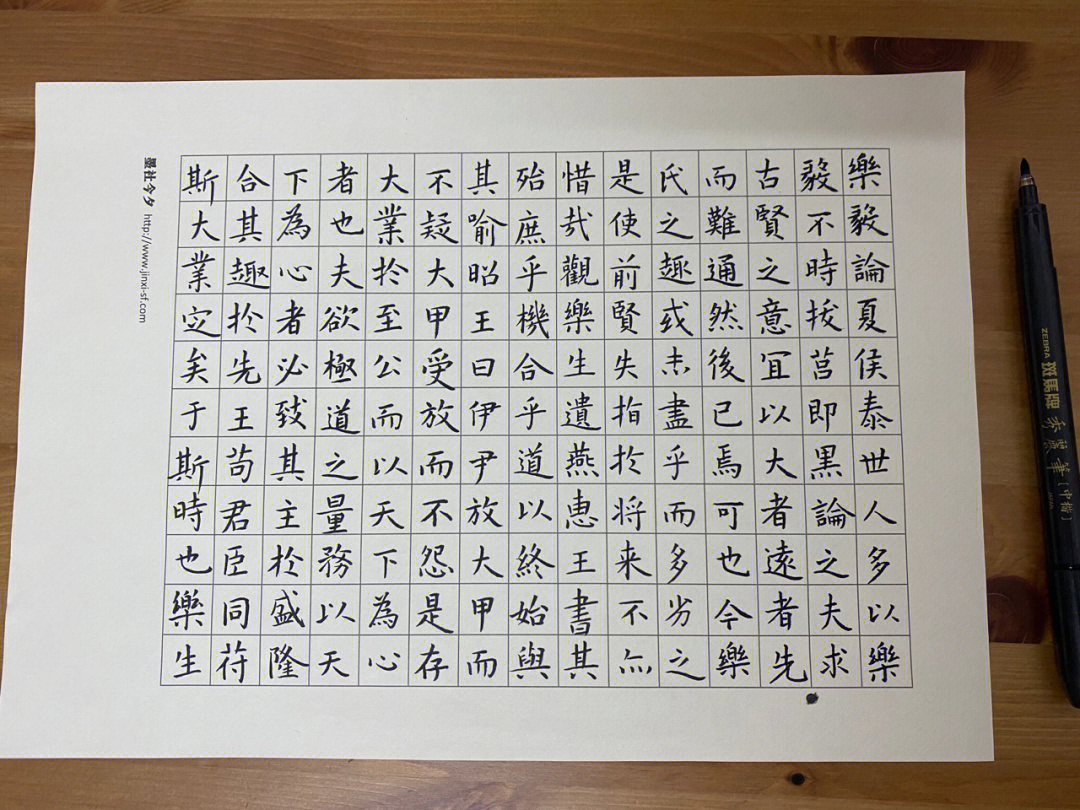 樂毅論夏侯泰世人多以樂
毅不時拔莒即黑論之夫求
古賢之意宜以大者遠者先
而難通然後已焉可也今樂
氏之趣或未盡乎而多劣之
是使前賢失指於将来不亦
惜哉觀樂生遺燕惠王書其
殆庶乎機合乎道以終始與
其喻昭王曰伊尹放大甲而
不疑大甲受放而不怨是存
大業於至公而以天下為心
者也夫欲極道之量務以天
下為心者必致其主於盛隆
合其趣於先王苟君臣同符
斯大業定矣于斯時也樂生
墨社今夕 http://www.jinxi-sf.com
ZEBRA 斑馬牌 秀麗筆 [中楷]